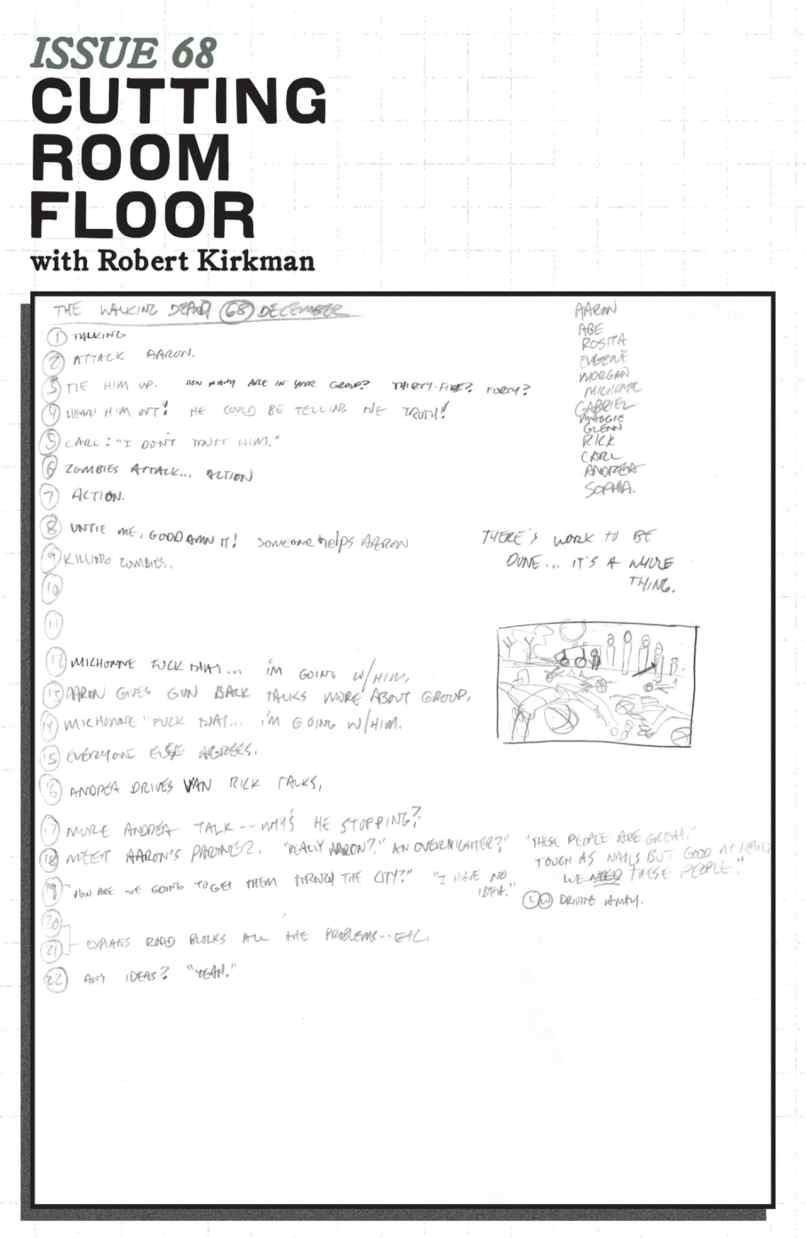 ISSUE 68
CUTTING
ROOM
FLOOR
with Robert Kirkman
THE WALKING DEAD 68 DECEMBER
1 TALKING
2 ATTACK AARON.
3 TIE HIM UP. HOW MANY ARE IN YOUR GROUP? THIRTY-FIVE? FORTY?
4 HIM OUT! HE COULD BE TELLING THE TRUTH!
5 CARL: "I DON'T TRUST HIM."
6 ZOMBIES ATTACK... ACTION
7 ACTION.
8 UNTIE ME, GODDAMN IT! SOMEONE HELPS AARON
9 KILLING ZOMBIES.
10
11
12 MICHONNE FUCK THAT... I'M GOING W/HIM.
13 AARON GIVES GUN BACK TALKS MORE ABOUT GROUP.
14 MICHONNE "FUCK THAT... I'M GOING W/HIM.
15 EVERYONE ELSE AGREES.
16 ANDREA DRIVES VAN RICK TALKS,
17 MORE ANDREA TALK -- WHY'S HE STOPPING?
18 MEET AARON'S PARTNER. "REALLY AARON?" AN OVERNIGHTER?"
19 "HOW ARE WE GOING TO GET THEM THROUGH THE CITY?" "I HAVE NO
IDEA."
20
21 EXPLAINS ROAD BLOCKS ALL THE PROBLEMS--ETC.
22 ANY IDEAS? "YEAH."
AARON
ABE
ROSITA
EUGENE
MORGAN
MICHONNE
GABRIEL
MAGGIE
GLENN
RICK
CARL
ANDREA
SOPHIA.
THERE'S WORK TO BE
DONE... IT'S A WHOLE
THING.
"THESE PEOPLE ARE GREAT."
TOUGH AS NAILS BUT GOOD AT
WE NEED THESE PEOPLE."
DRIVING AWAY.